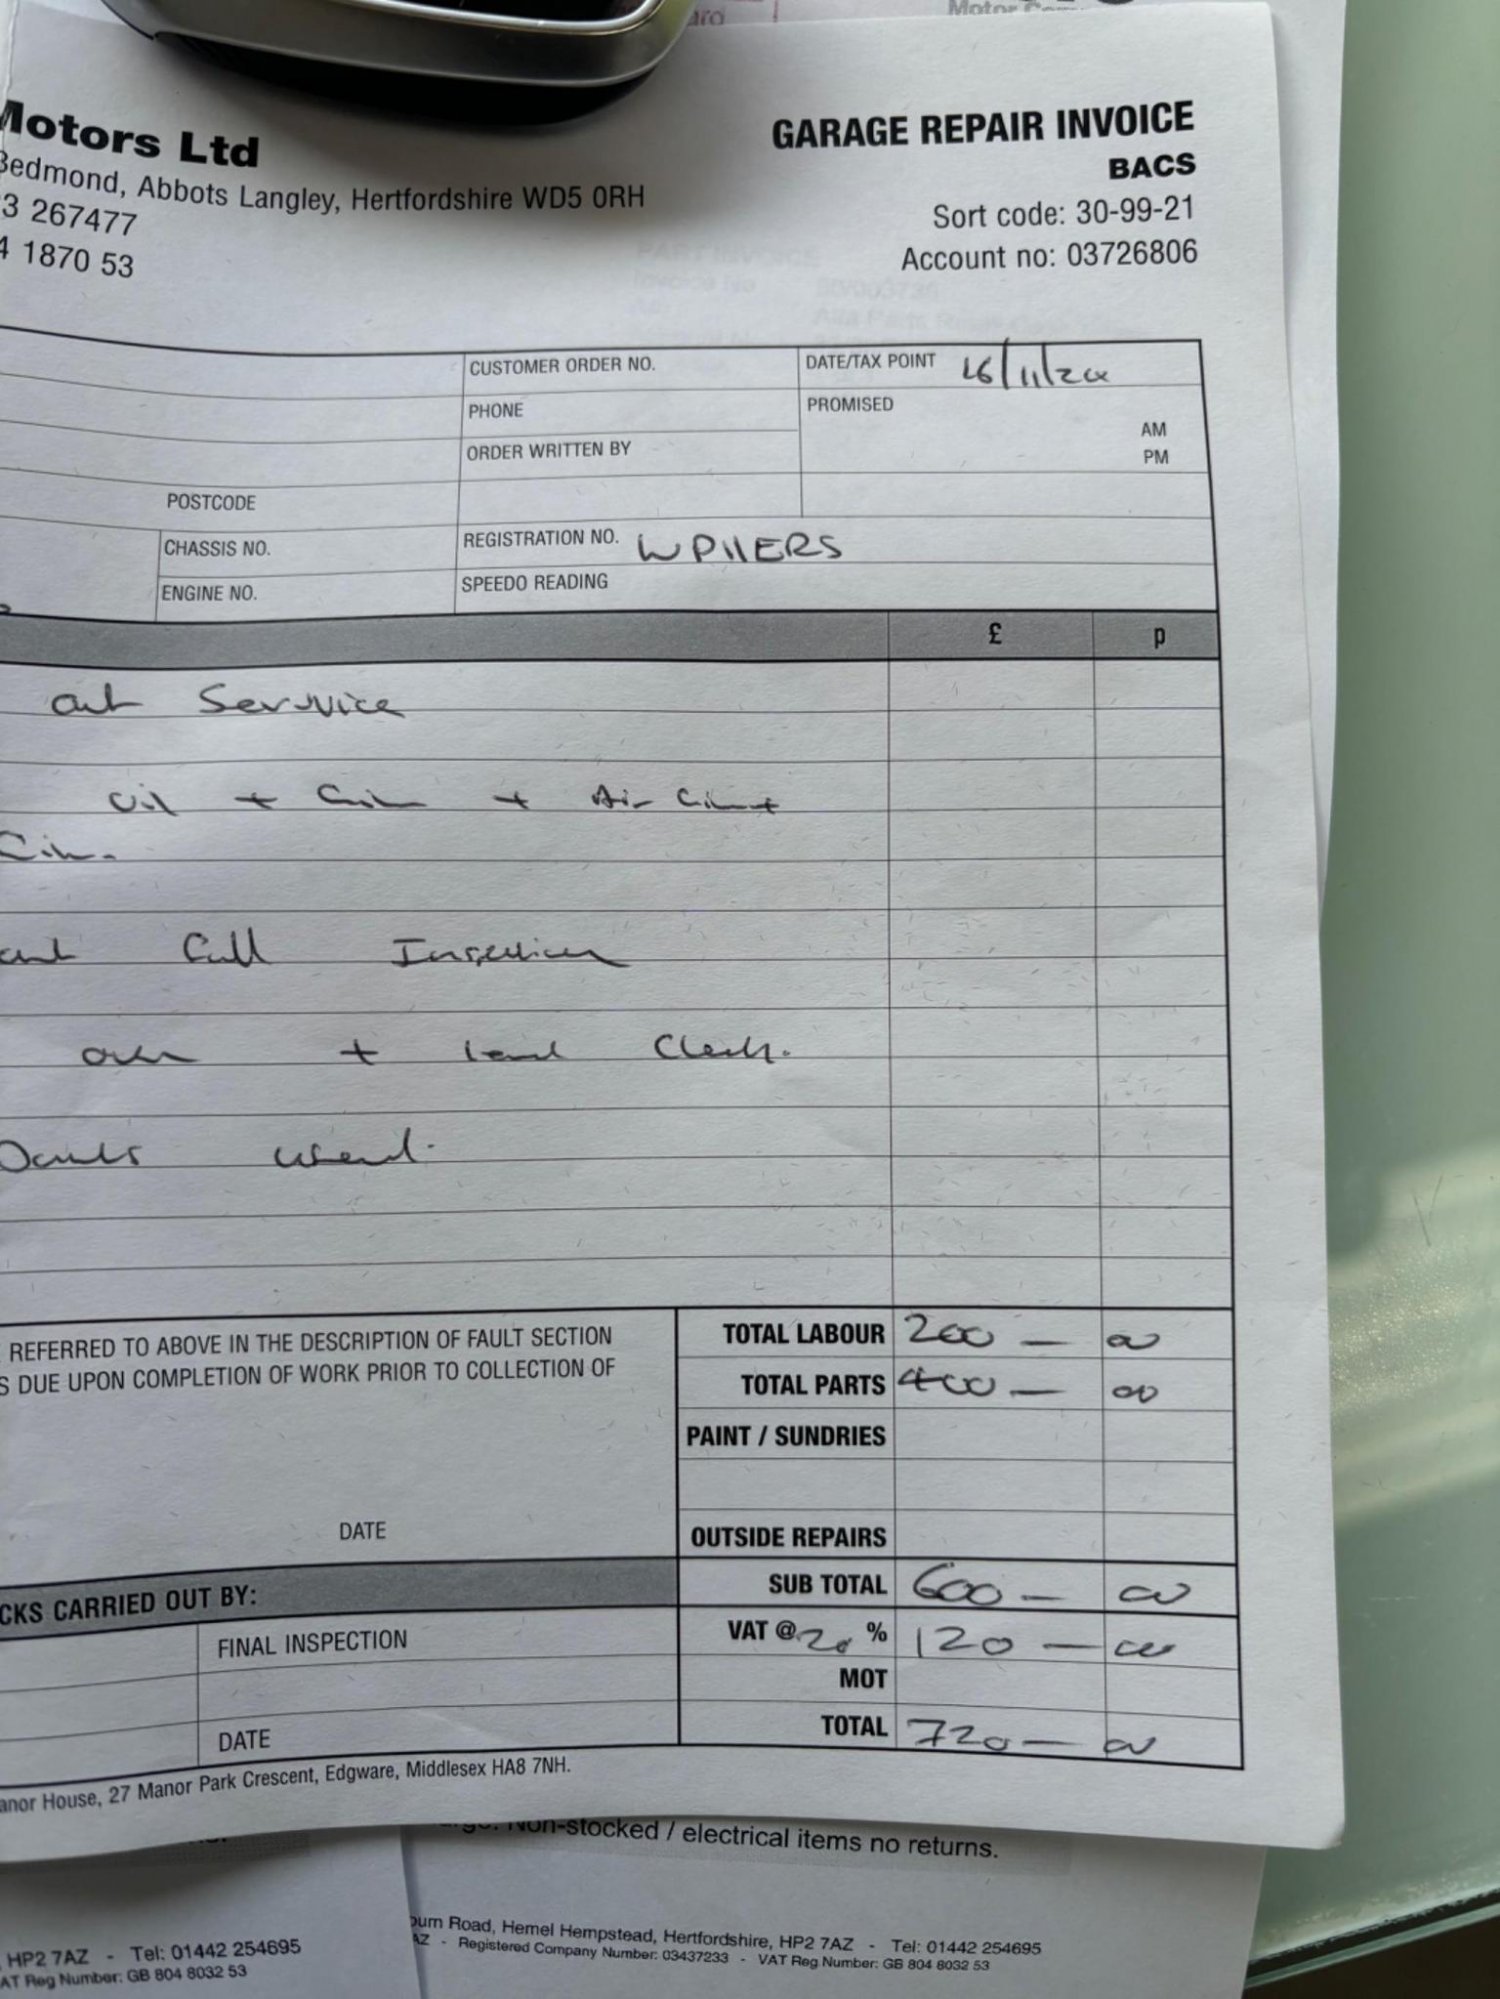 Motor
Motors Ltd
Bedmond, Abbots Langley, Hertfordshire WD5 0RH
3 267477
4 1870 53
GARAGE REPAIR INVOICE
BACS
Sort code: 30-99-21
Account no: 03726806
CUSTOMER ORDER NO.
DATE/TAX POINT
PHONE
PROMISED
AM
ORDER WRITTEN BY
PM
POSTCODE
CHASSIS NO.
REGISTRATION NO. WP11ERS
ENGINE NO.
SPEEDO READING
£ p
out Servvice
oil + + Air
Full
+ Check.
used.
REFERRED TO ABOVE IN THE DESCRIPTION OF FAULT SECTION
S DUE UPON COMPLETION OF WORK PRIOR TO COLLECTION OF
DATE
TOTAL LABOUR 200 — 00
TOTAL PARTS 400 — 00
PAINT / SUNDRIES
OUTSIDE REPAIRS
SUB TOTAL 600 — 00
CKS CARRIED OUT BY:
VAT @ 20 % 120 — 00
FINAL INSPECTION
MOT
DATE
TOTAL 720 — 00
anor House, 27 Manor Park Crescent, Edgware, Middlesex HA8 7NH.
Non-stocked / electrical items no returns.
HP2 7AZ - Tel: 01442 254695
AT Reg Number: GB 804 8032 53
burn Road, Hemel Hempstead, Hertfordshire, HP2 7AZ - Tel: 01442 254695
AZ - Registered Company Number: 03437233 - VAT Reg Number: GB 804 8032 53